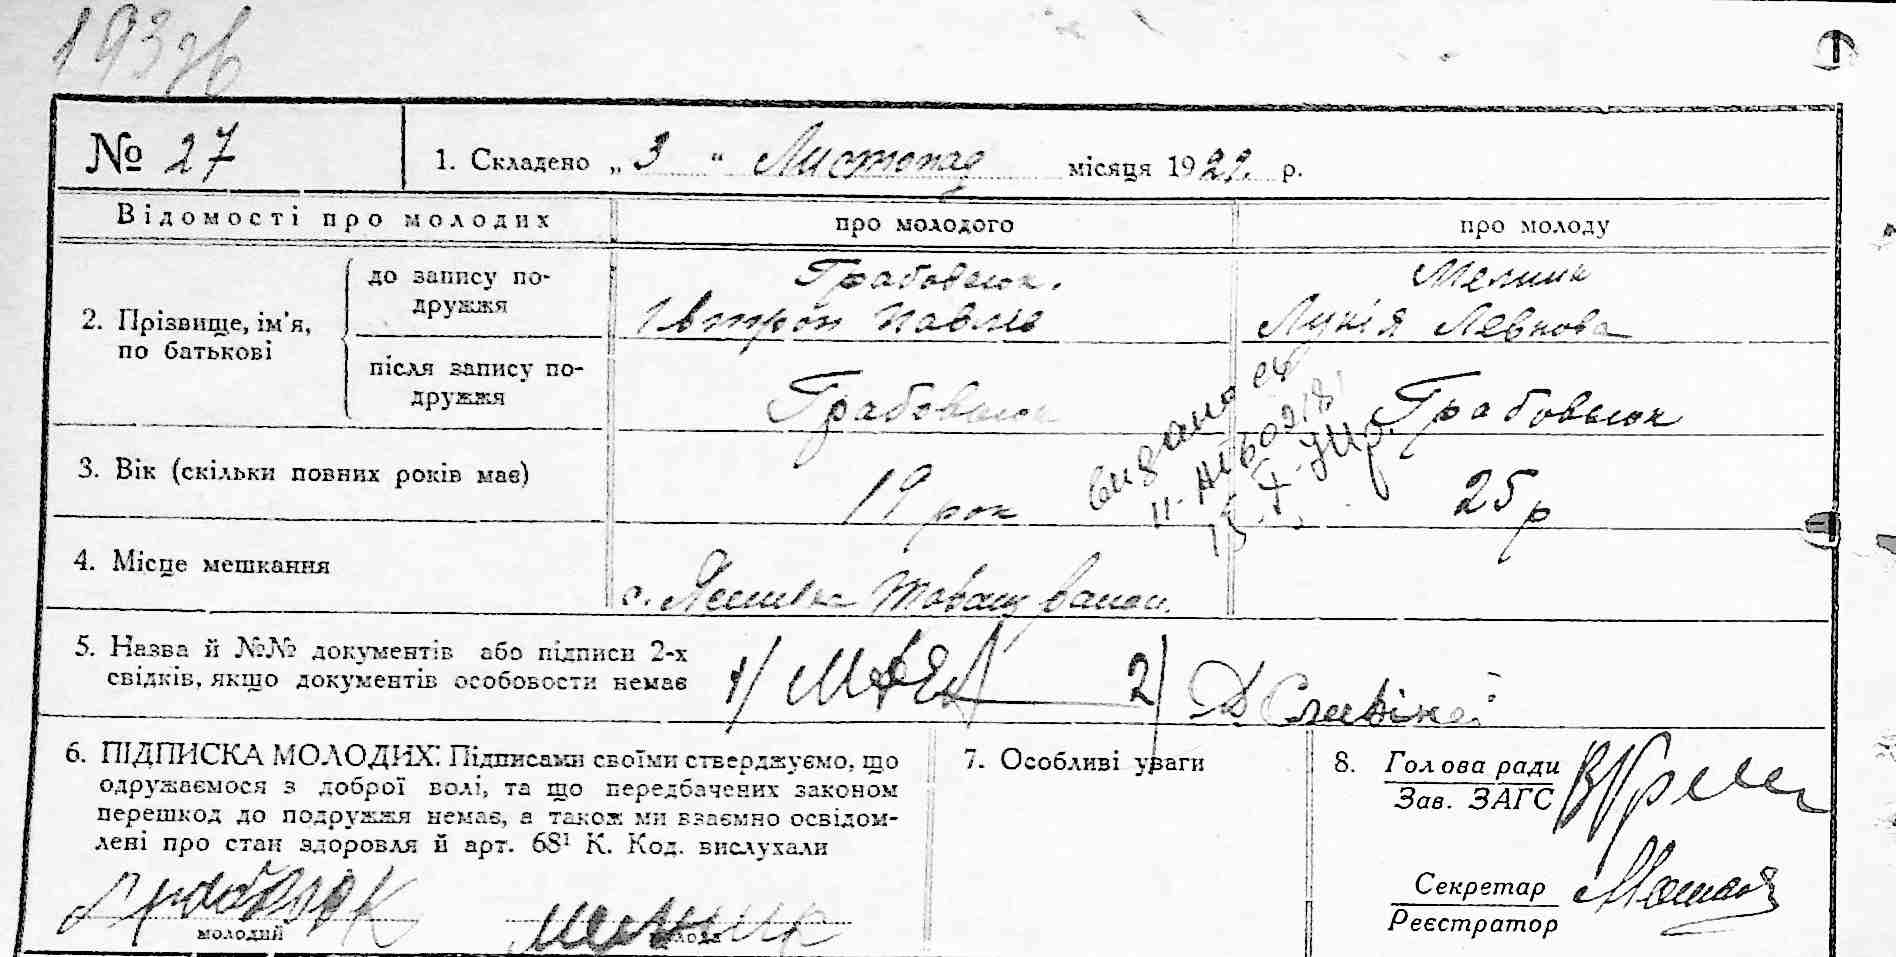 № 27
1. Складено „ 3 “ Листопад місяця 1922 р.
Відомості про молодих
про молодого
про молоду
2. Прізвище, ім'я, по батькові
до запису по-
дружжя
Грабовсюк.
Павлів
Мелник
Лукія Левкова
після запису по-
дружжя
Грабовсюк
Грабовсюк
3. Вік (скільки повних років має)
19 рок
25 р
видано
4. Місце мешкання
с.
5. Назва й №№ документів або підписи 2-х
свідків, якщо документів особовости немає
1/
2/
6. ПІДПИСКА МОЛОДИХ: Підписами своїми стверджуємо, що
одружаємося з доброї волі, та що передбачених законом
перешкод до подружжя немає, а також ми взаємно освідом-
лені про стан здоровля й арт. 68¹ К. Код. вислухали
молодий
молода
7. Особливі уваги
8. Голова ради
Зав. ЗАГС
Секретар
Реєстратор